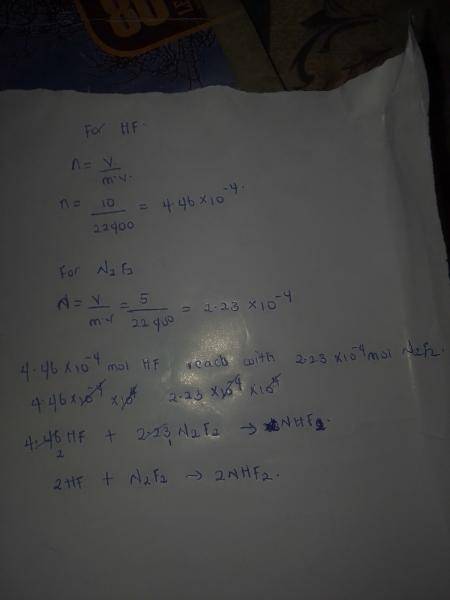 80
For HF.
n = V / m.v.
n = 10 / 22400 = 4.46 × 10⁻⁴.
For N₂F₂
N = V / m.v = 5 / 22400 = 2.23 × 10⁻⁴
4.46 × 10⁻⁴ mol HF reach with 2.23 × 10⁻⁴ mol N₂F₂.
4.46 × 10⁻⁴ × 10⁴ 2.23 × 10⁻⁴ × 10⁴
4.46 2 HF + 2.23 1 N₂F₂ → NHF₂.
2HF + N₂F₂ → 2NHF₂.